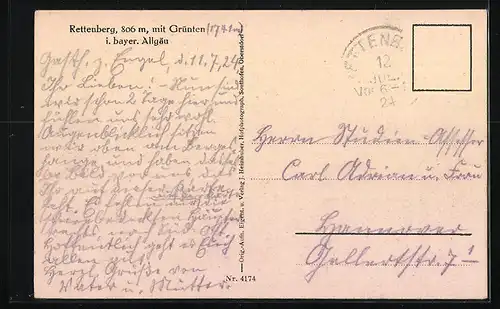 Rettenberg, 806 m, mit Grünten (1741 m)
i. bayer. Allgäu
Gasth. z. Engel, d. 11.7.24
Ihr Lieben! Nun sind
wir schon 2 Tage hier und
fühlen uns sehr wohl.
Augenblicklich sitzen
wir oben am Berges-
hange und haben dassel-
be Bild vor uns, das
Ihr auf dieser Karte
seht. Es fehlt nur die
rechts, noch
Hoffentlich geht es Euch
allen gut.
Herzl. Grüße von
Vater u. Mutter.
Orig.-Aufn. Eigent. u. Verlag J. Heimhuber, Hofphotograph, Sonthofen, Oberstdorf
Nr. 4174
RETTENB
12
JUL
24
Herrn Studien-Assessor
Carl Adrian u. Frau
Hannover
Gellertstr. 7